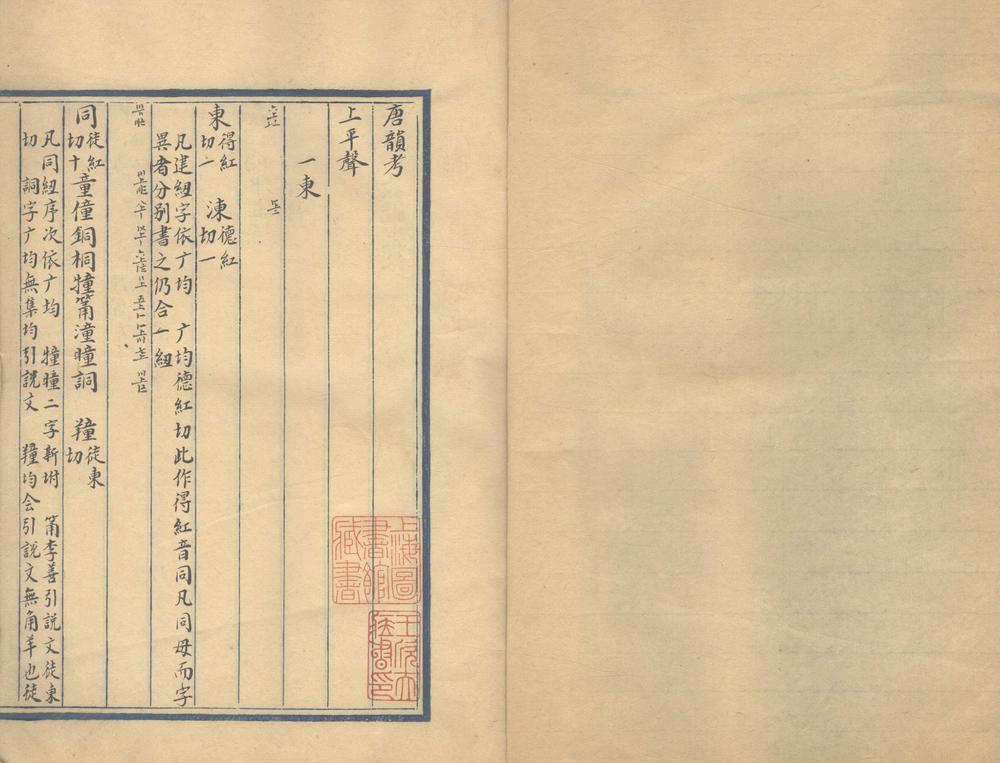 唐韻考
上平聲
一東
東 得紅切二 涷 德紅切一
凡建紐字依广均 广均德紅切此作得紅音同凡同母而字
異者分别書之仍合一紐
同 徒紅切十 童僮銅桐犝筩潼曈詷 䍶 徒東切
凡同紐序次依广均 犝曈二字新坿 筩李善引説文徒東
切 詷字广均無集均引説文 䍶均会引説文無角羊也徒
上海圖書館藏書